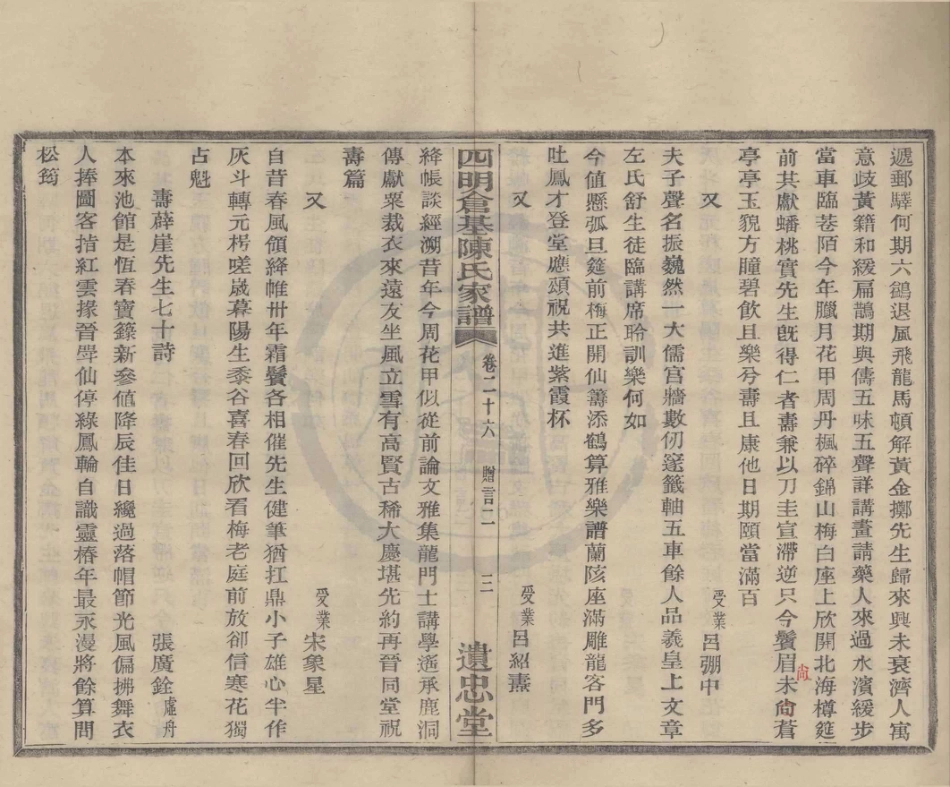 遞郵驛何期六鷁退風飛龍馬頓解黃金擲先生歸來興未衰濟人寓
意歧黃籍和緩扁鵲期與儔五味五聲詳講畫請藥人來過水濱緩步
當車臨巷陌今年臘月花甲周丹楓碎錦山梅白座上欣開北海樽筵
前共獻蟠桃實先生旣得仁者壽兼以刀圭宣滯逆只今鬢眉未尙蒼
尙
亭亭玉貌方瞳碧飲且樂兮壽且康他日期頤當滿百
又
受業呂弸中
夫子聲名振巍然一大儒宮牆數仞邃籤軸五車餘人品羲皇上文章
左氏舒生徒臨講席聆訓樂何如
又
受業呂紹燾
今值懸弧旦筵前梅正開仙籌添鶴算雅樂譜蘭陔座滿雕龍客門多
吐鳳才登堂應頌祝共進紫霞杯
四明倉基陳氏家譜
卷二十六
贈言二
三
遺忠堂
絳帳談經溯昔年今周花甲似從前論文雅集龍門士講學遙承鹿洞
傳獻粟裁衣來遠友坐風立雪有高賢古稀大慶堪先約再晉同堂祝
壽篇
又
受業宋象星
自昔春風領絳帷卅年霜鬢各相催先生健筆猶扛鼎小子雄心半作
灰斗轉元枵嗟歲暮陽生黍谷喜春回欣看梅老庭前放卻信寒花獨
占魁
壽薛崖先生七十詩
張廣銓虛舟
本來池館是恆春寶籙新參値降辰佳日纔過落帽節光風偏拂舞衣
人捧圖客指紅雲掾晉斝仙停綠鳳輪自識靈椿年最永漫將餘算問
松筠